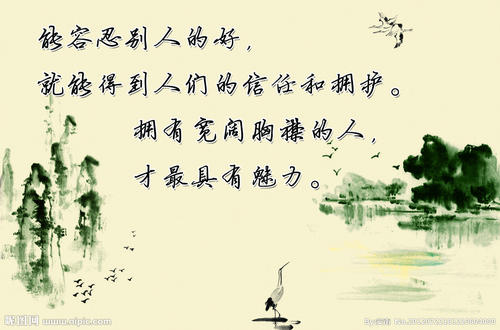 能容忍别人的好，
就能得到人们的信任和拥护。
拥有宽阔胸襟的人，
才最具有魅力。
昵图网 www.nipic.com